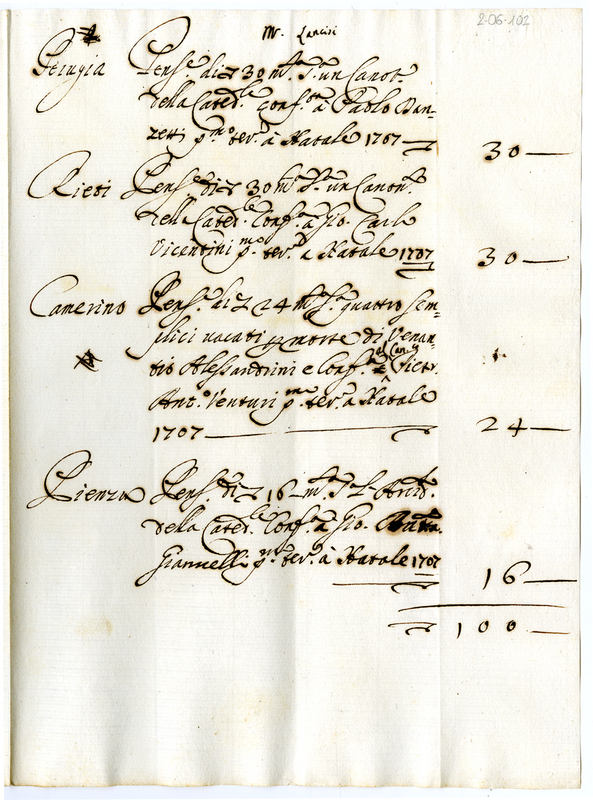 2-06-102
Mr. Lancisi
Perugia Pens.e di ▽ 30 m.ta s.a un Canot.
della Cated.le conf.ta à Paolo Dan-
zetti p.mo ter.e à Natale 1707 30
Rieti Pens.e di ▽ 30 m.ta s.a un Canon.to
della Cated.le Conf.ta à Gio. Carlo
Vicentini p.mo ter.e a Natale 1707 30
Camerino Pens.e di ▽ 24 m.ta s.a quattro sem-
plici vacati p morte di Venan-
tio Alessandrini e Conf.ti al Can.co Pietr.
Ant.o Venturi p.mo ter.e a Natale
1707 24
Pienza Pens.e di ▽ 16 m.ta s.a L'Arcid.
della Cated.le Conf.ta à Gio. Batta.
Giannelli p.mo ter.e à Natale 1707 16
100